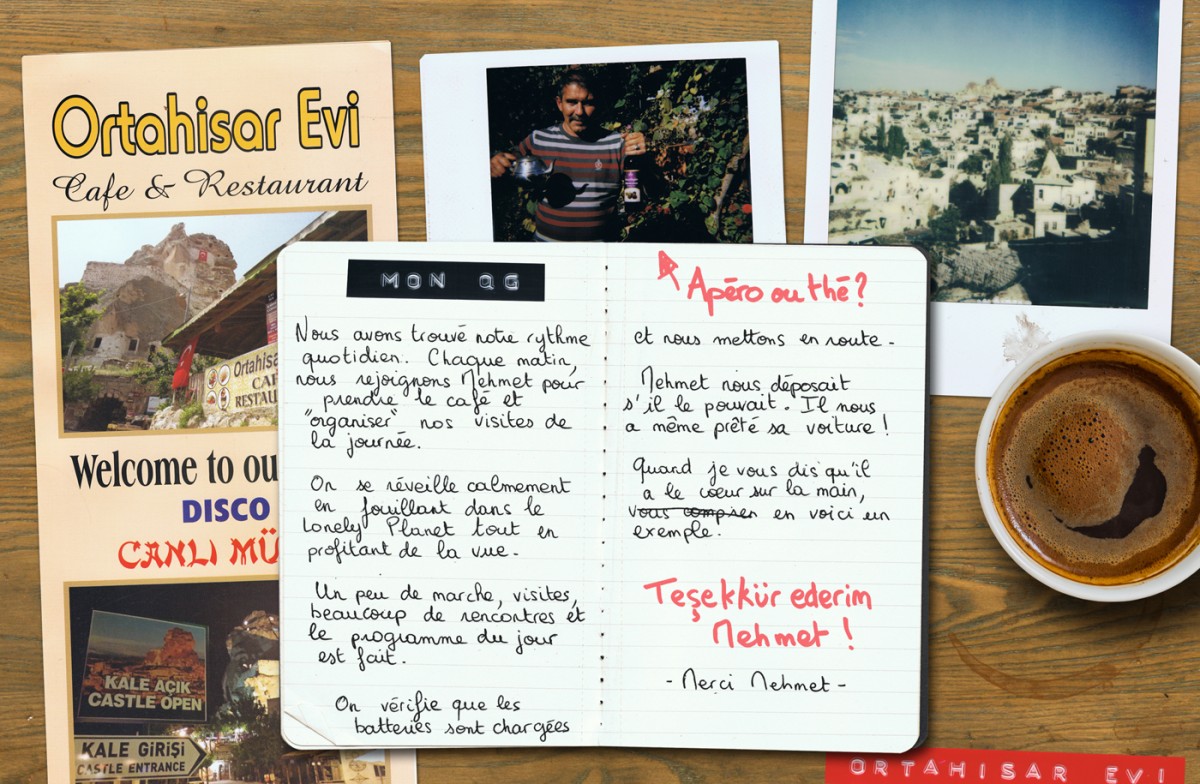 Ortahisar Evi
Cafe & Restaurant
Ortahisa
CAF
RESTAU
Welcome to ou
DISCO
CANLI MÜ
KALE AÇIK
CASTLE OPEN
KALE GİRİŞİ
CASTLE ENTRANCE
MON QG
Nous avons trouvé notre rythme
quotidien. Chaque matin,
nous rejoignons Mehmet pour
prendre le café et
"organiser" nos visites de
la journée.
On se réveille calmement
en fouillant dans le
Lonely Planet tout en
profitant de la vue.
Un peu de marche, visites,
beaucoup de rencontres et
le programme du jour
est fait.
On vérifie que les
batteries sont chargées
Apéro ou thé ?
et nous mettons en route.
Mehmet nous déposait
s'il le pouvait. Il nous
a même prêté sa voiture !
Quand je vous dis qu'il
a le cœur sur la main,
en voici un
exemple.
Teşekkür ederim
Mehmet !
- Merci Mehmet -
ORTAHISAR EVI